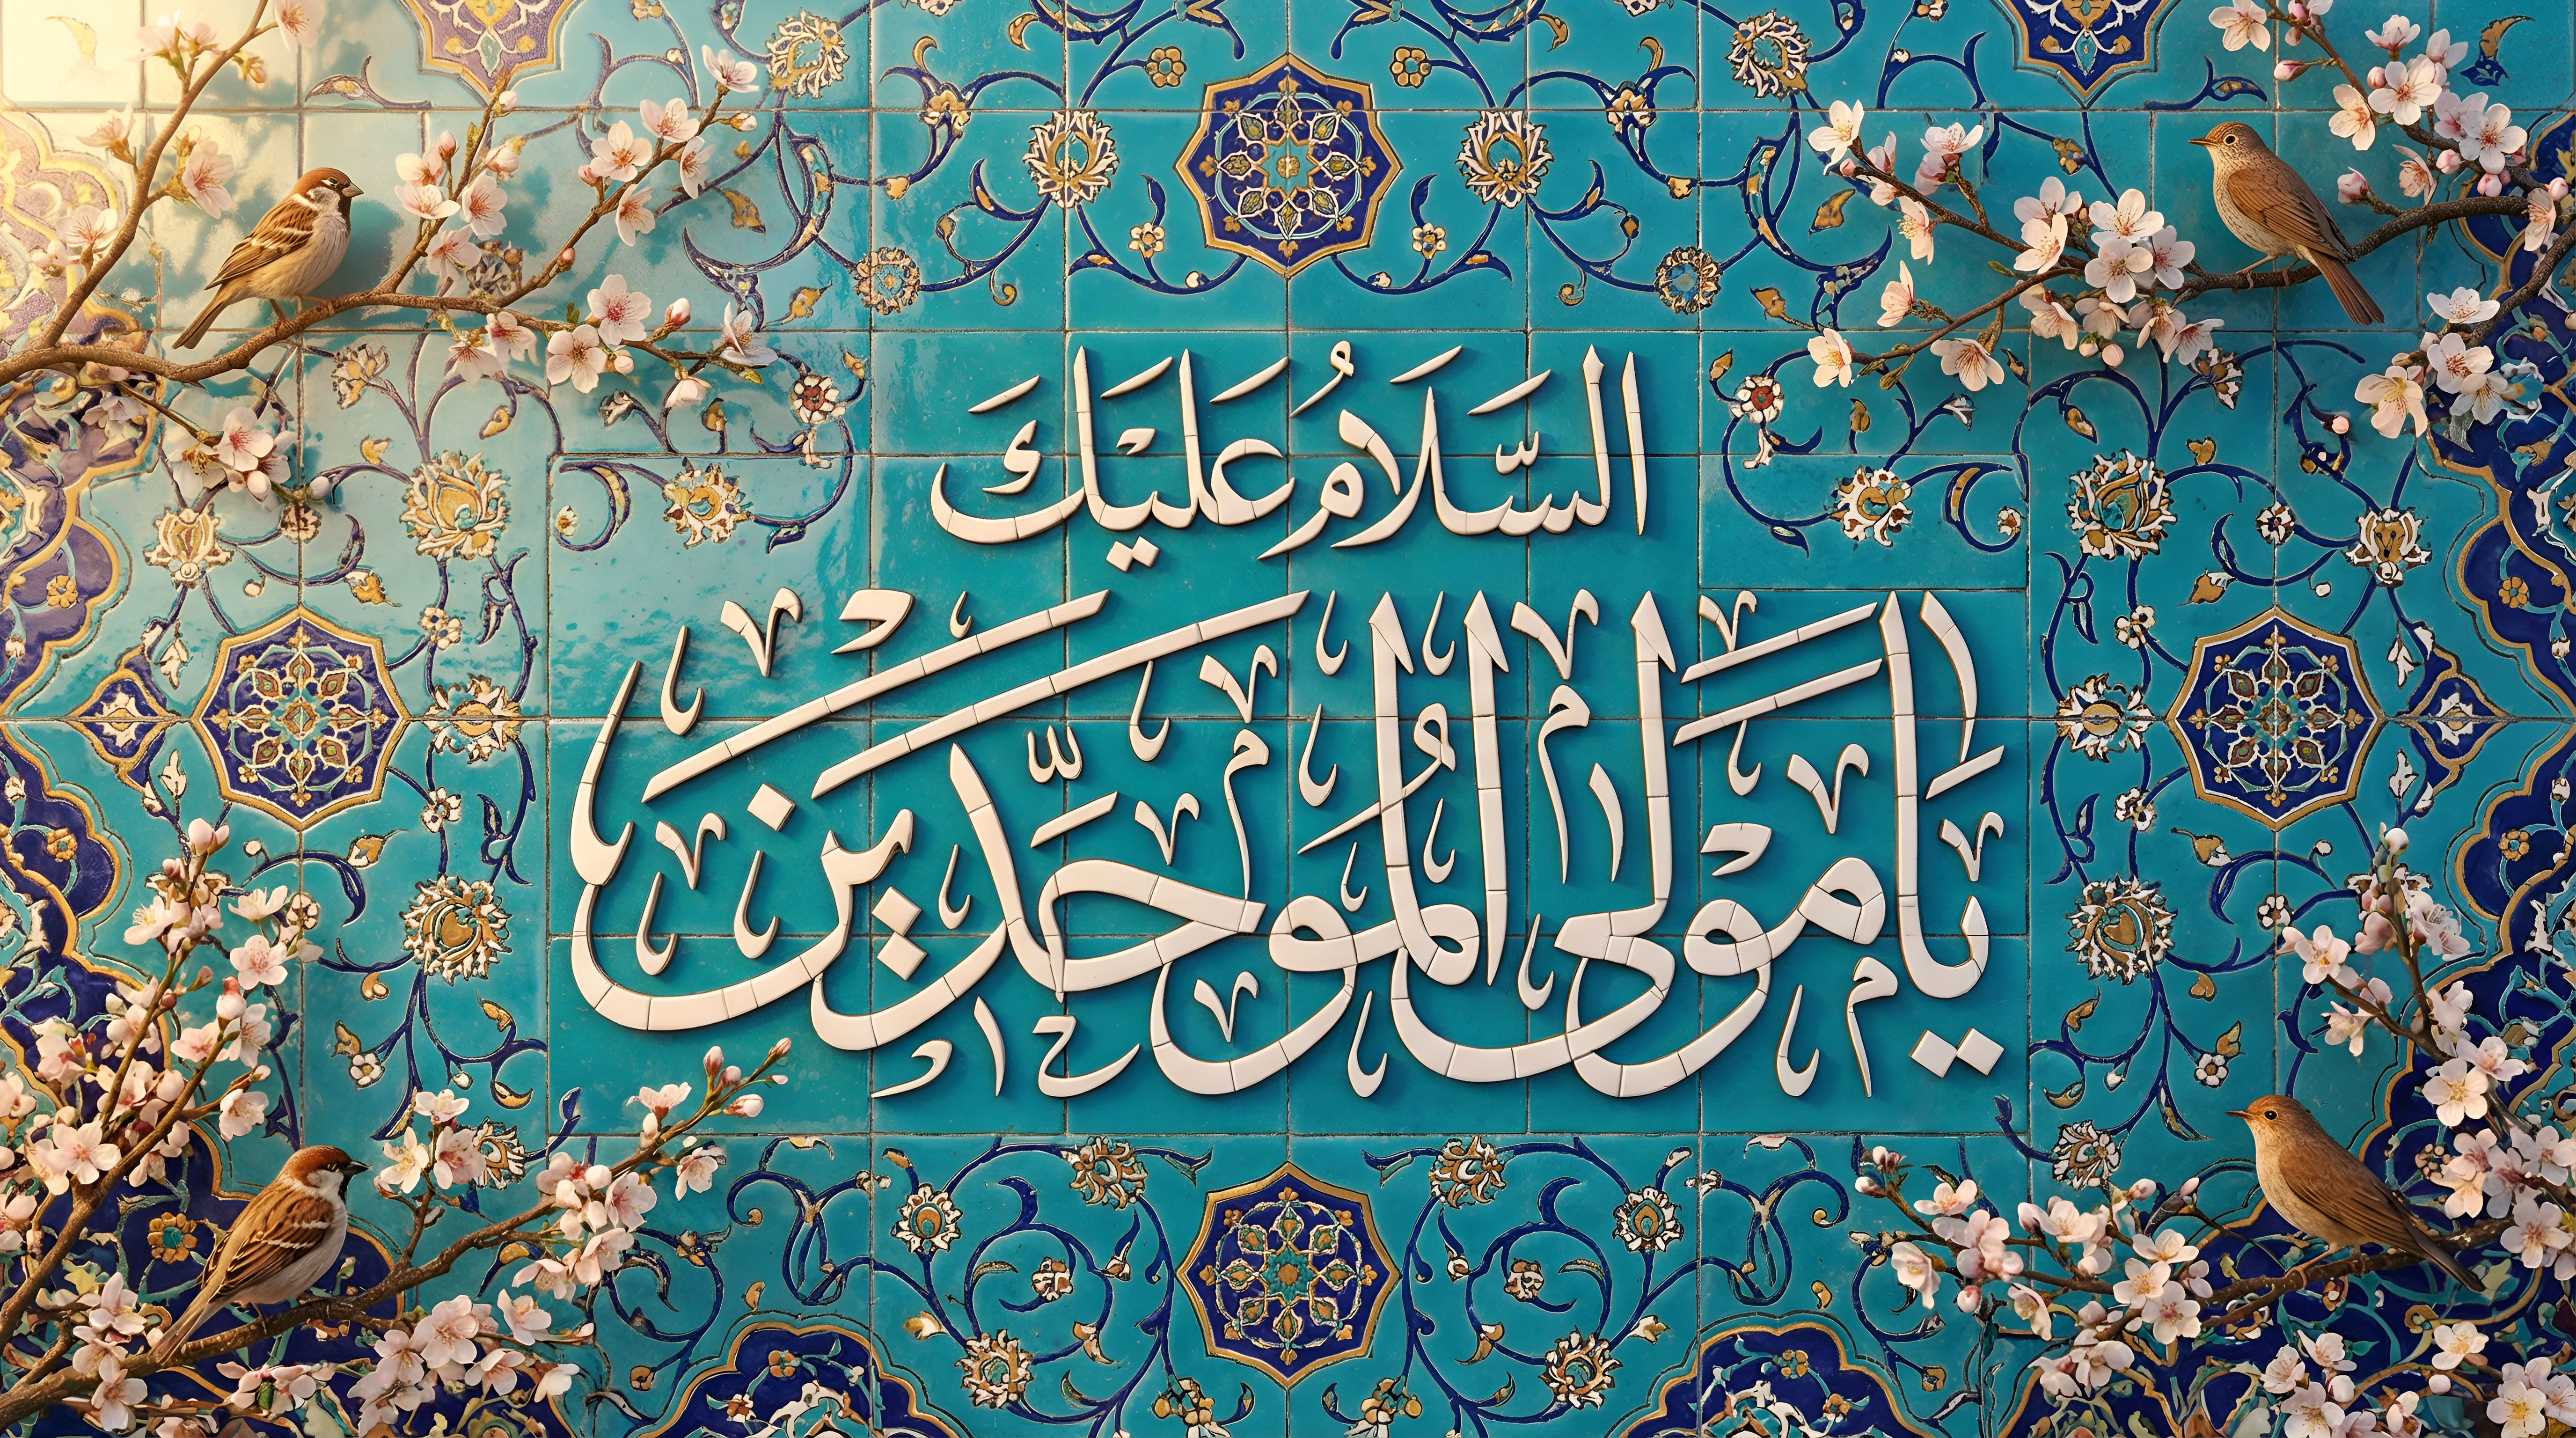 السَّلَامُ عَلَيْكَ
يَا مَوْلَى الْمُوَحِّدِينَ